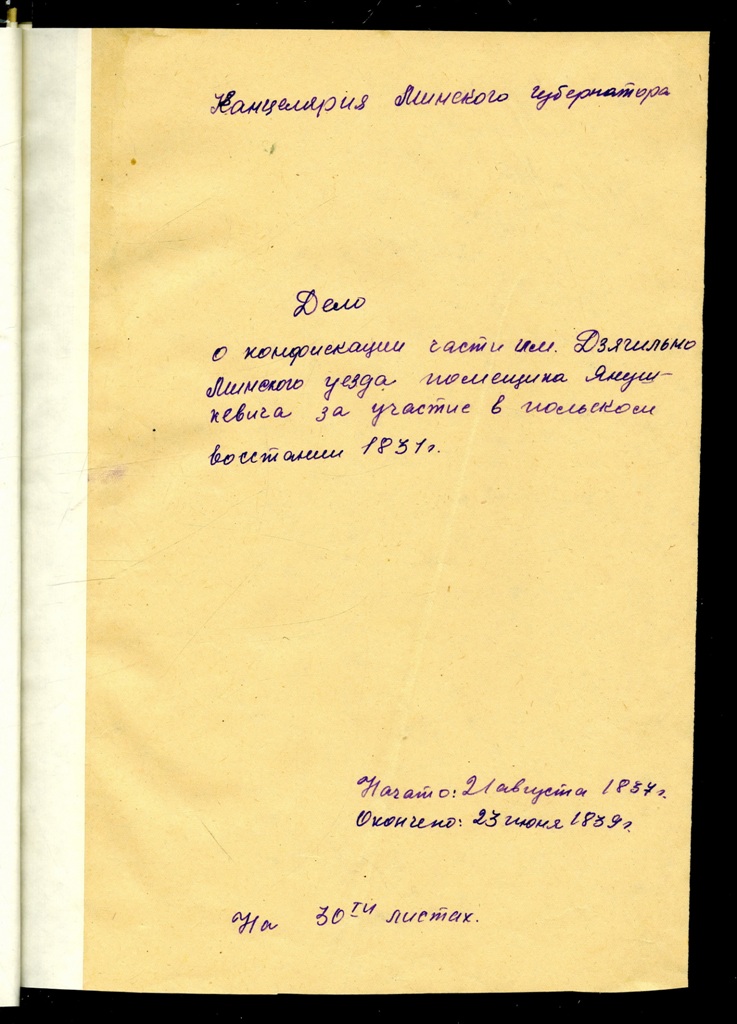 Канцелярия Минского губернатора
Дело
о конфискации части им. Дзягильно
Минского уезда помещика Януш-
кевича за участие в польском
восстании 1831г.
Начато: 21 августа 1837г.
Окончено: 23 июня 1839г.
На 30ти листах.